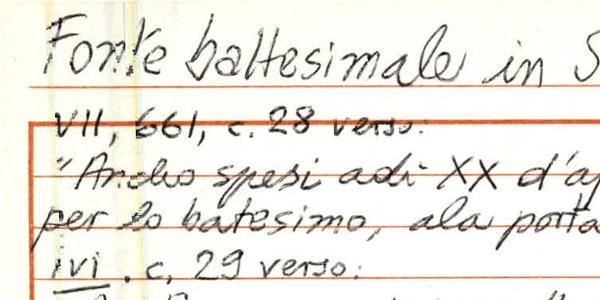 Fonte battesimale in S
VII, 661, c. 28 verso:
"Ancho spesi adi XX d'ap
per lo batesimo, ala porta
ivi. c. 29 verso: